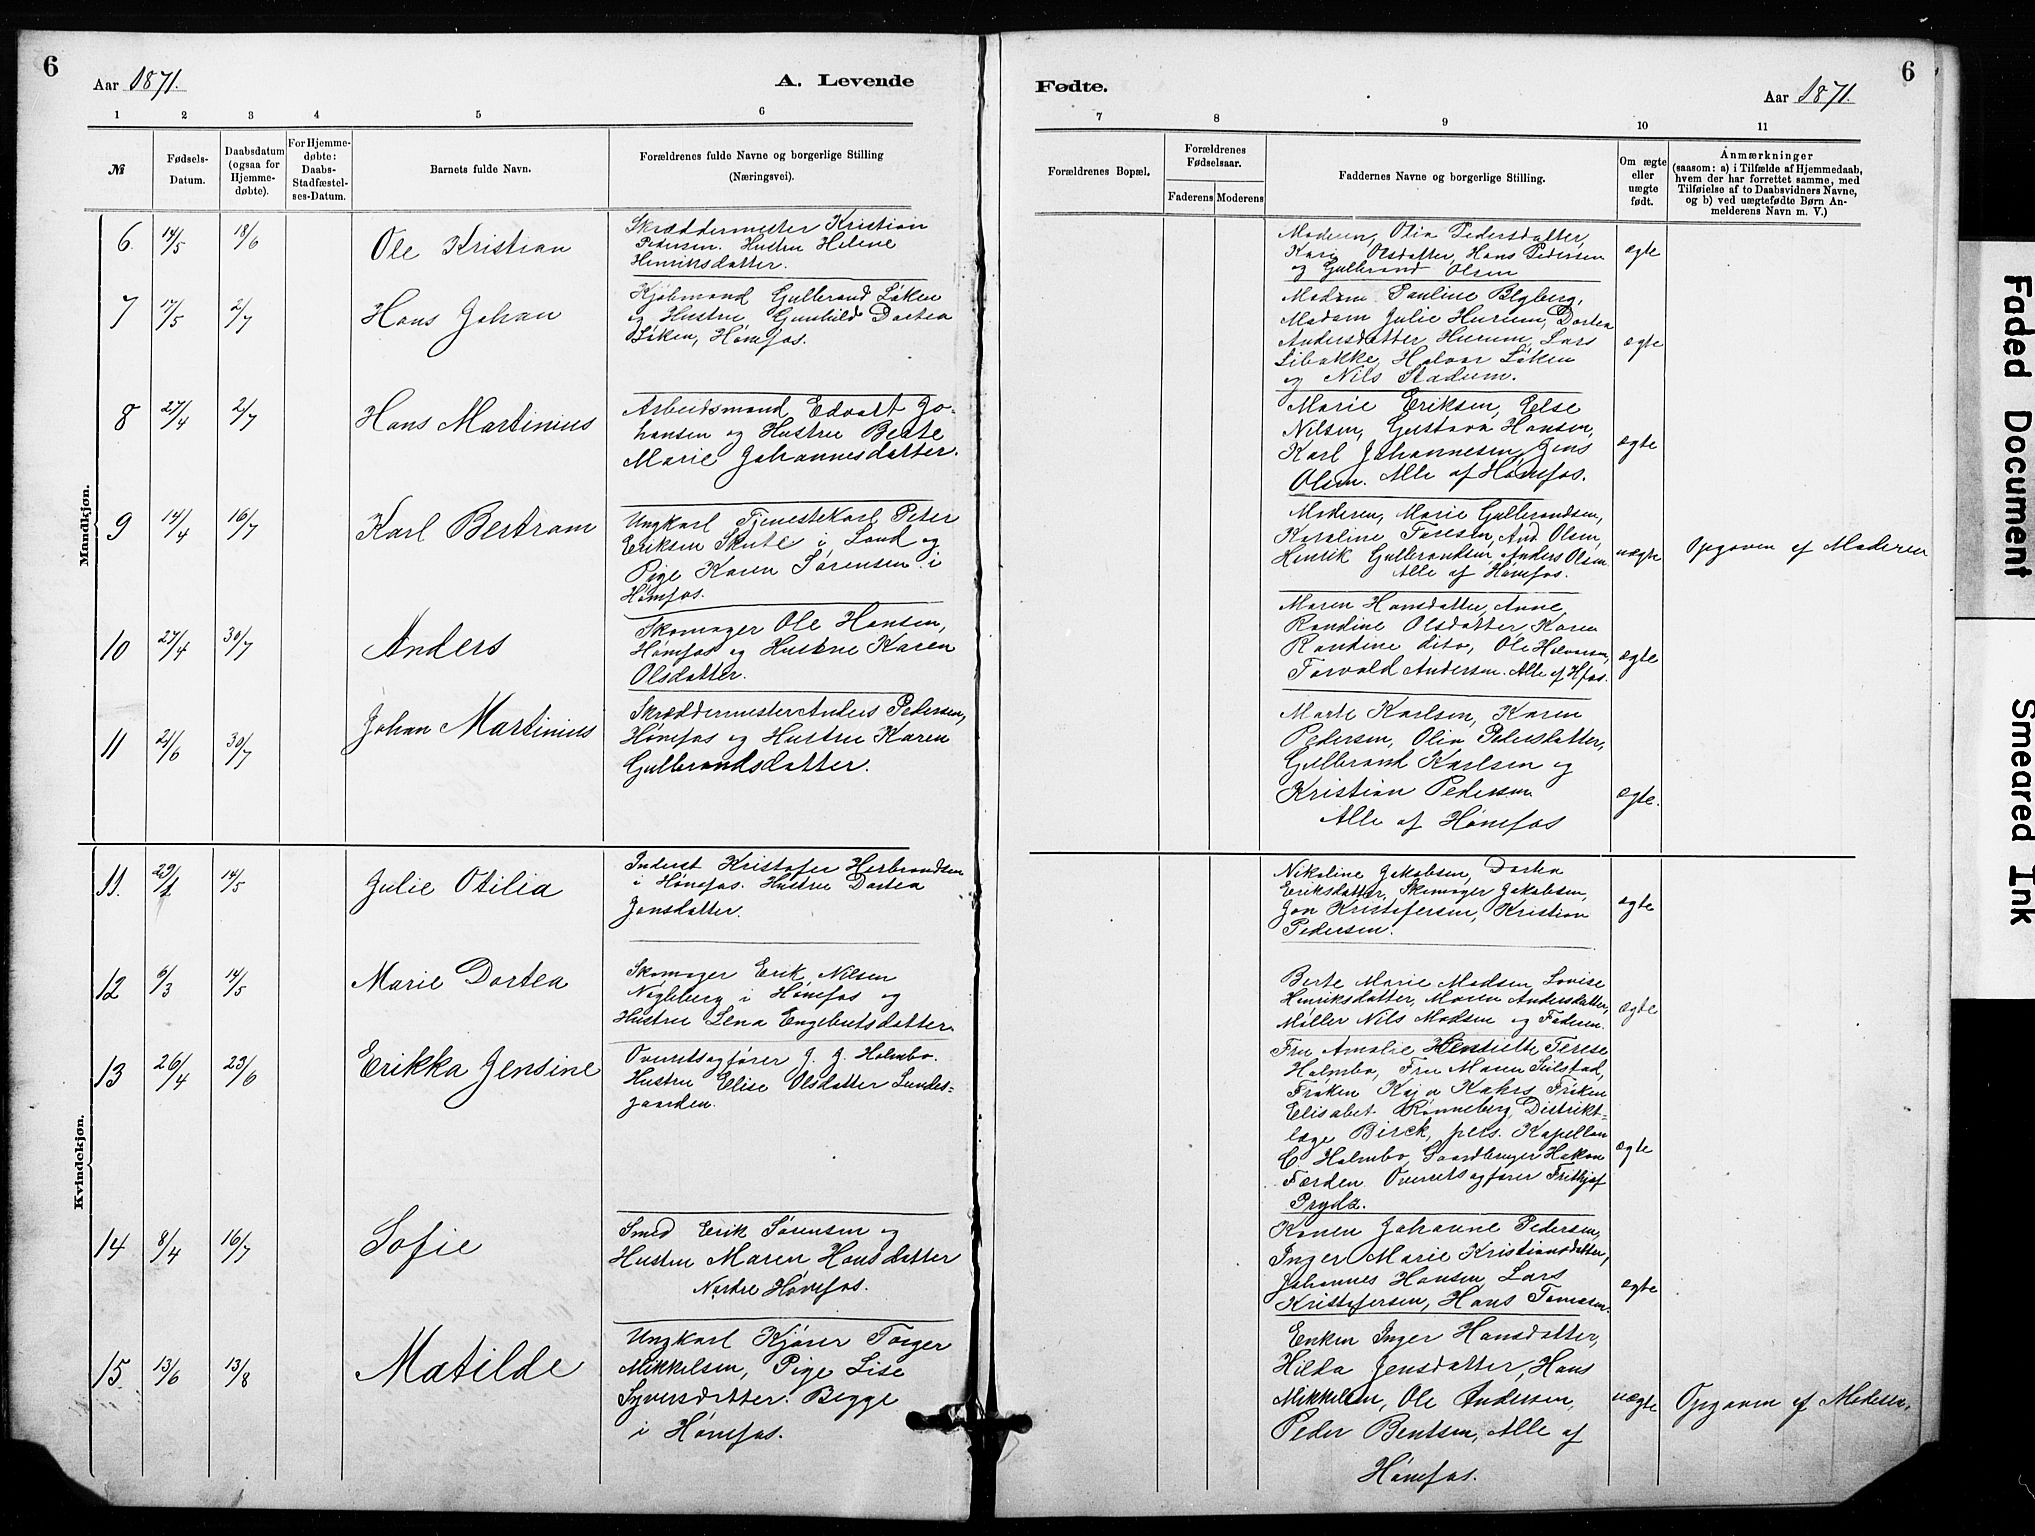 6
Aar 1871.
A. Levende
1 2 3 4 5 6
№
Fødsels-
Datum.
Daabsdatum
(ogsaa for
Hjemme-
døbte).
For Hjemme-
døbte:
Daabs-
Stadfæstel-
ses-Datum.
Barnets fulde Navn.
Forældrenes fulde Navne og borgerlige Stilling
(Næringsvei).
Mandkjøn.
6. 14/5 18/6 Ole Kristian
Skræddermester Kristian
Pedersen. Hustru Helene
Henriksdatter.
7 17/5 2/7 Hans Johan
Kjøbmand Gulbrand Løken
og Hustru Gunhild Dortea
Løken, Hønefos.
8 27/4 2/7 Hans Martinius
Arbeidsmand Edvart Jo-
hansen og Hustru Beate
Marie Johannesdatter.
9 14/4 16/7 Karl Bertram
Ungkarl Tjenestekarl Peter
Eriksen Skute i Land og
Pige Karen Sørensen i
Hønefos.
10 27/4 30/7 Anders
Skomager Ole Hansen,
Hønefos og Hustru Karen
Olsdatter.
11 21/6 30/7 Johan Martinius
Skræddermester Anders Pedersen,
Hønefos og Hustru Karen
Gulbrandsdatter.
Kvindekjøn.
11. 14/5 Julie Otilia
Inderst Kristofer Herbrandsen
i Hønefos. Hustru Dortea
Jonsdatter.
12 6/3 14/5 Marie Dortea
Skomager Erik Nilsen
i Hønefos og
Hustru Lena Engebretsdatter.
13 26/4 23/6 Erikka Jensine
Overretsagfører J. J. Holmbo.
Hustru Elise Olsdatter Lundes-
gaarden.
14 8/4 16/7 Sofie
Smed Erik Sørensen og
Hustru Maren Hansdatter
Nordre Hønefos.
15 13/6 13/8 Matilde
Ungkarl Kjører Torger
Mikkelsen, Pige Lise
Syversdatter. Begge
i Hønefos.
Fødte.
6
Aar 1871.
7 8 9 10 11
Forældrenes Bopæl.
Forældrenes
Fødselsaar.
Faderens Moderens
Faddernes Navne og borgerlige Stilling.
Om ægte
eller
uægte
født.
Anmærkninger
(saasom: a) i Tilfælde af Hjemmedaab,
hvem der har forrettet samme, med
Tilføielse af to Daabsvidners Navne,
og b) ved uægtefødte Børn An-
melderens Navn m. V.)
Moderen, Olia Pedersdatter,
Kari Olsdatter, Hans Pedersen
og Gulbrand Olsen
ægte
Madam Pauline Blyberg,
Madam Julie Hurum, Dortea
Andersdatter Hurum, Lars
Libakke, Halvor Løken
og Nils Stadum.
ægte
Marie Eriksen, Else
Nilsen, Gustava Hansen,
Karl Johannesen, Jens
Olsen. Alle af Hønefos.
ægte
Moderen, Marie Gulbrandsen,
Karoline Toresen, And. Olsen,
Henrik Gulbrandsen, Anders Olsen
Alle af Hønefos.
uægte
Opgaven af Moderen
Maren Hansdatter, Anne
Randine Olsdatter, Karen
Randine dito, Ole Halvorsen,
Torvald Andersen. Alle af Hfos.
ægte
Marte Karlsen, Karen
Pedersen, Olia Pedersdatter,
Gulbrand Karlsen og
Kristian Pedersen
Alle af Hønefos
ægte.
Nikoline Jakobsen, Dortea
Eriksdatter, Skomager Jakobsen,
Jon Kristofersen, Kristian
Pedersen.
ægte
Berte Marie Madsen, Lovise
Henriksdatter, Maren Andersdatter,
Møller Nils Madsen og Faderen.
ægte
Fru Amalie Henriette Terese
Holmbo, Fru Maren Sülstad,
Frøken Kaja Kahrs, Frøken
Elisabet Rønneberg, Distrikt-
læge Birck, pers. Kapellan
C. Holmbo, Gaardbruger Hakon
Færden. Overretsagfører Frithjof
Prydz.
ægte
Konen Johanne Pedersen,
Inger Marie Kristiansdatter,
Johannes Hansen, Lars
Kristofersen, Hans Tomesen.
ægte
Enken Inger Hansdatter,
Hilda Jensdatter, Hans
Mikkelsen, Ole Andersen,
Peder Bentsen, Alle af
Hønefos.
uægte
Opgaven af Moderen.
Faded Document
Smeared Ink